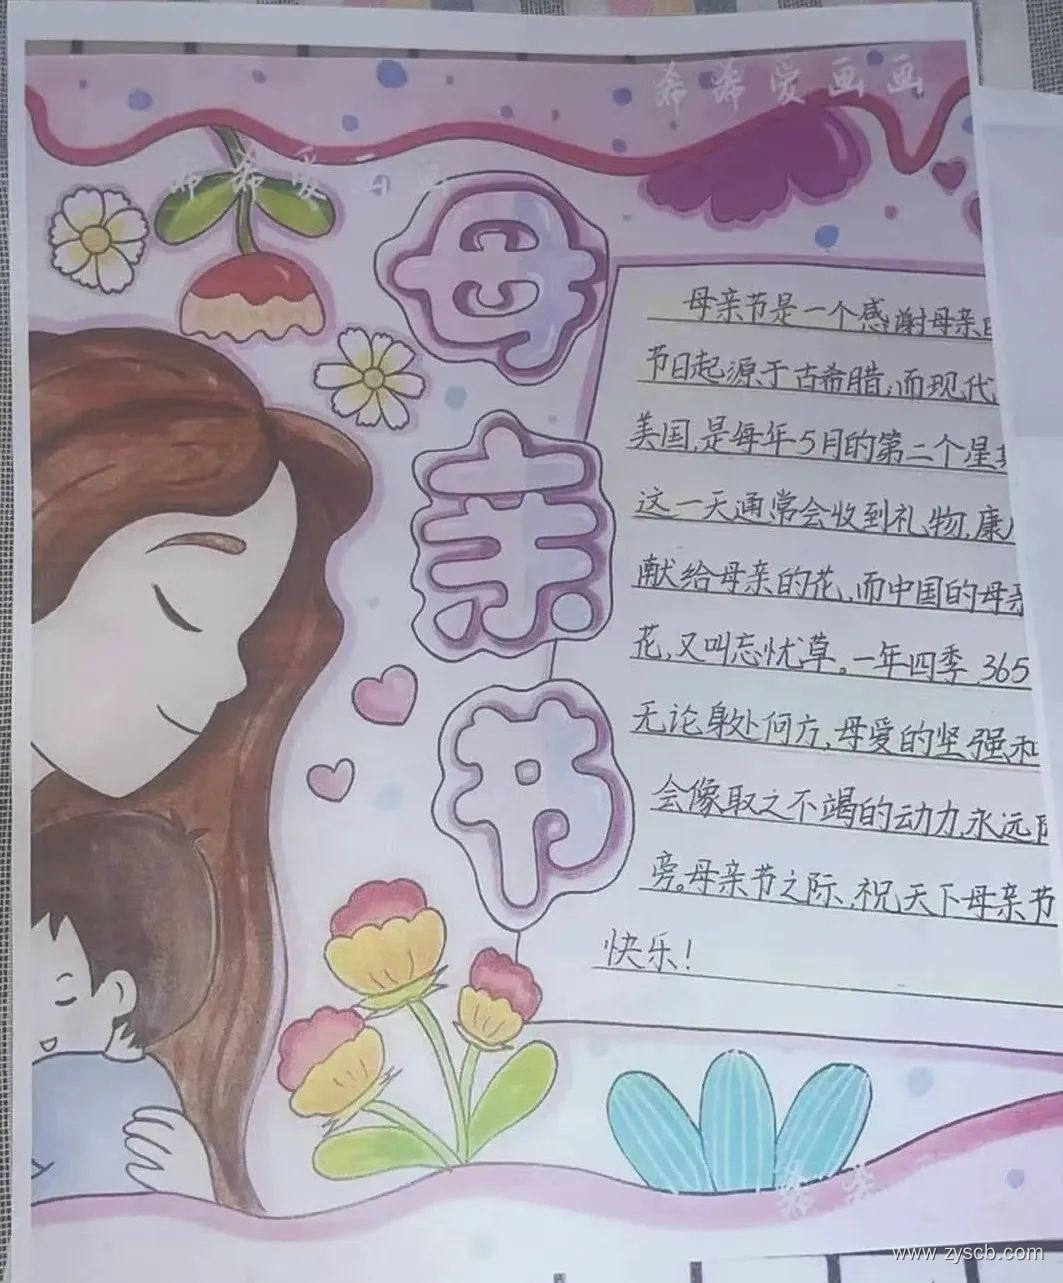 希希爱画画
希希爱画画
母亲节
母亲节是一个感谢母亲
节日起源于古希腊,而现代
美国,是每年5月的第二个星
这一天通常会收到礼物,康
献给母亲的花,而中国的母亲
花,又叫忘忧草。一年四季,365
无论身处何方,母爱的坚强和
会像取之不竭的动力,永远
旁。母亲节之际,祝天下母亲节
快乐!
希希
www.zyscb.com